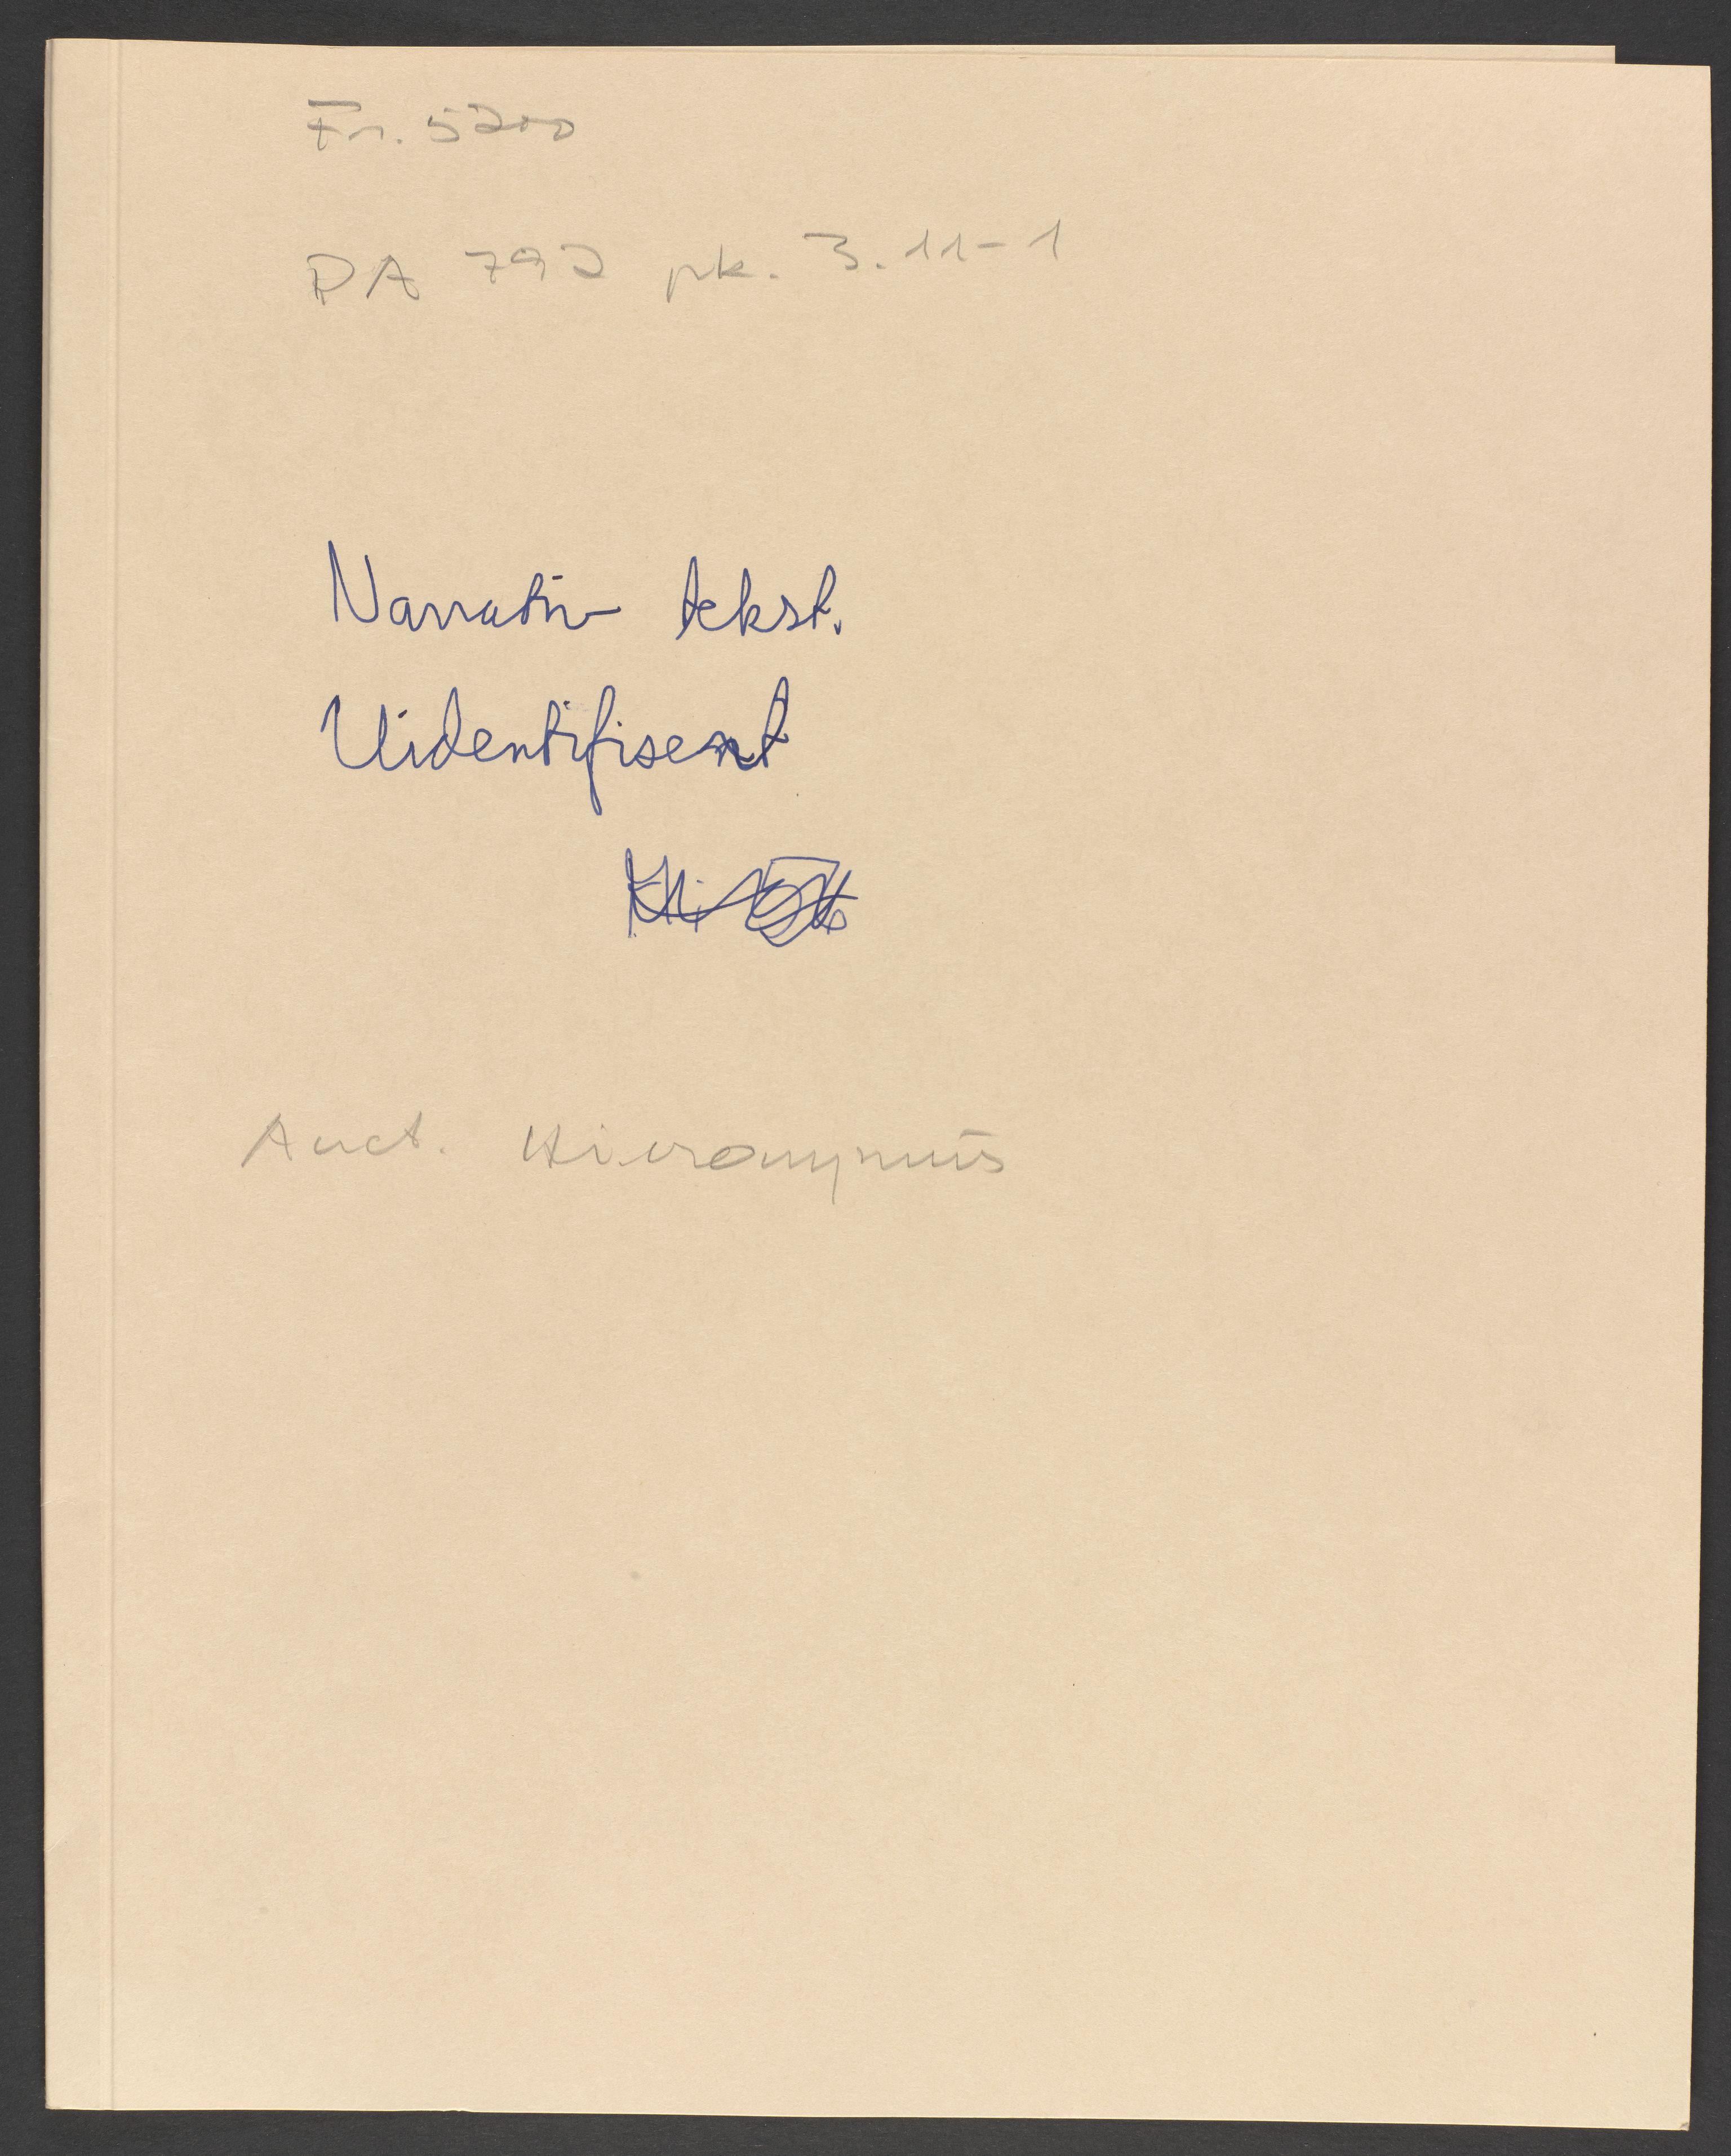 Fr. 5200
PA 792 pk. 3.11-1
Narrativ tekst.
Uidentifisert
Auct. Hieronymus